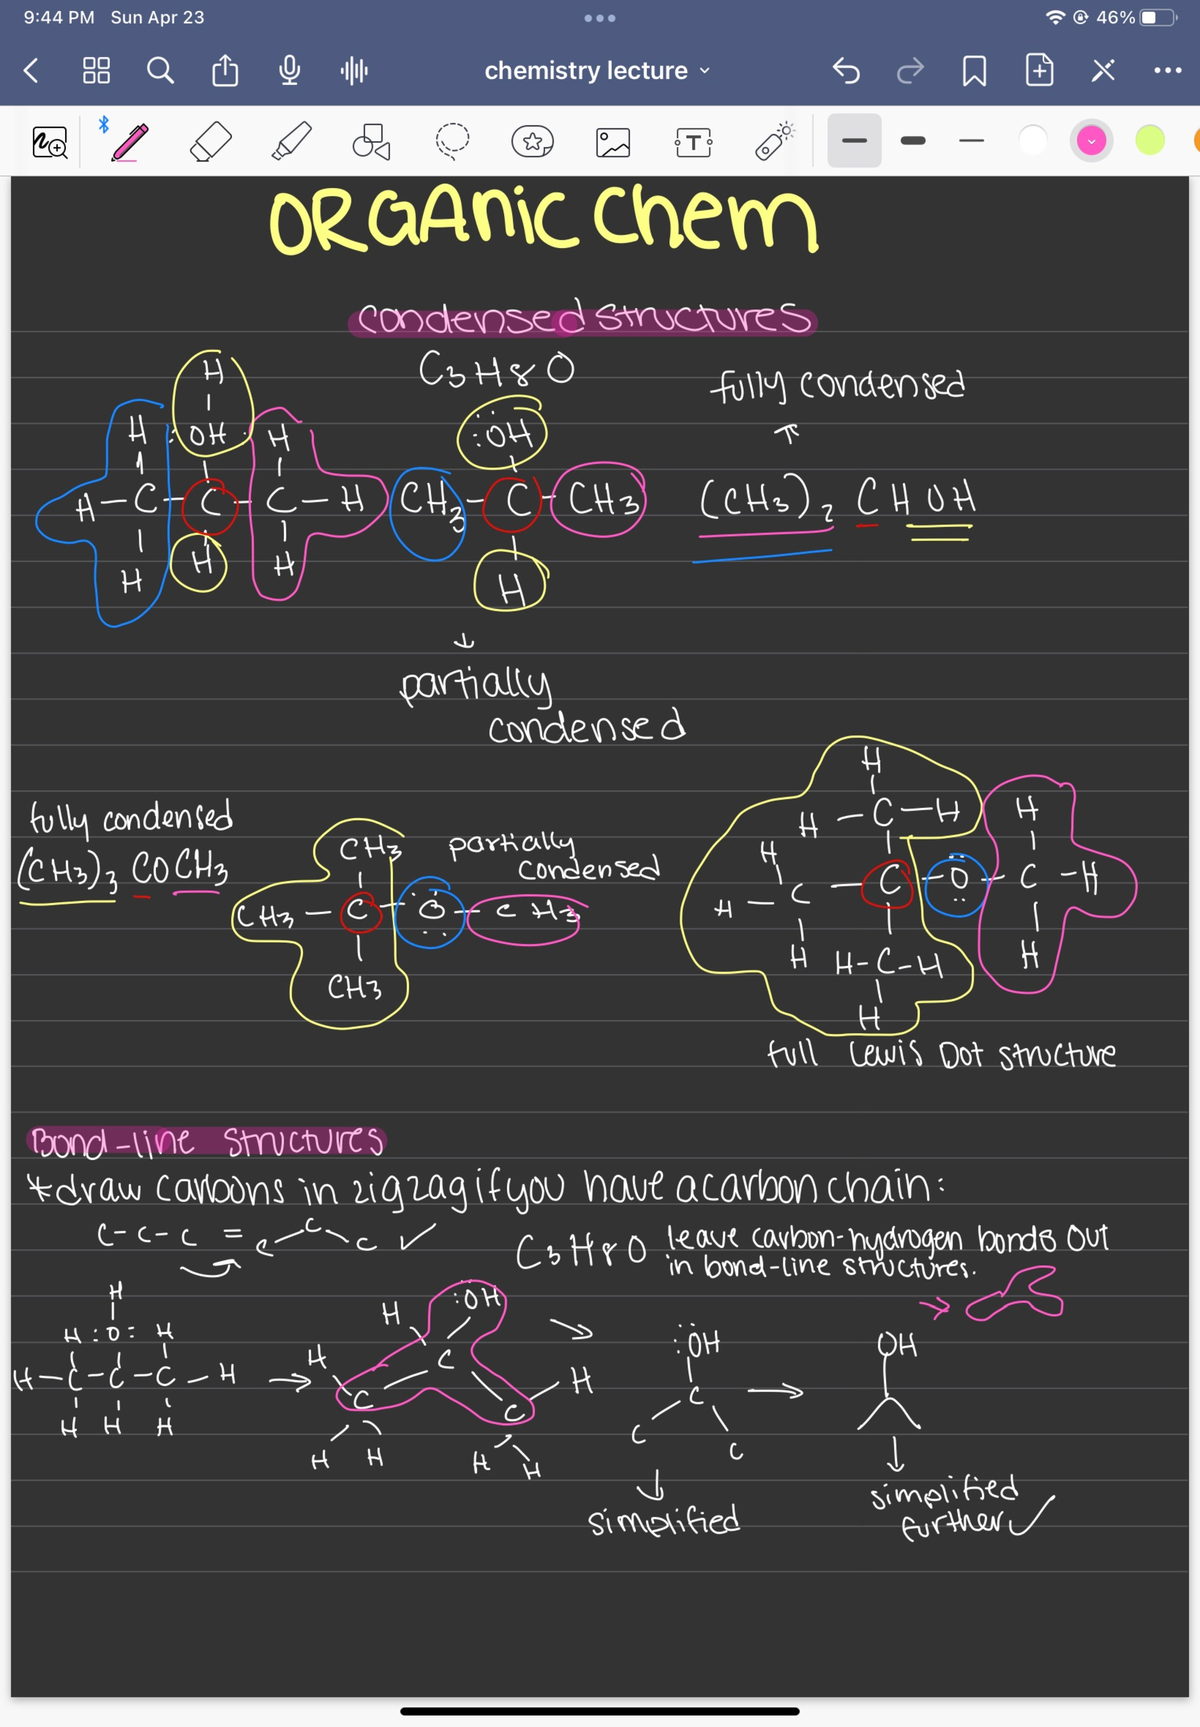 9:44 PM Sun Apr 23
46%
chemistry lecture
T
ORGANIC Chem
condensed structures
C3H8O
fully condensed
H
|
H :OH H
| | |
H-C-C-C-H
| | |
H H H
:ÖH
|
CH3-C-CH3
|
H
(CH3)2 CHOH
partially
condensed
fully condensed
(CH3)3 COCH3
CH3
|
CH3-C-O-CH3
|
CH3
partially
condensed
H
|
H-C-H H
H | |
H-C-C-O-C-H
| | |
H H-C-H H
|
H
full Lewis Dot structure
Bond-line structures
*draw carbons in zigzag if you have a carbon chain:
C-C-C = C C C ✓
C3H8O
leave carbon-hydrogen bonds out
in bond-line structures.
H
|
H :O: H
| | |
H-C-C-C-H
| | |
H H H
H :OH
H C H
C C
H H H H
:ÖH
C
C C
OH
simplified
simplified
further ✓